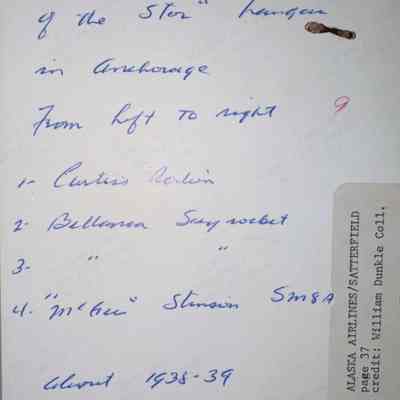 of the "Star" hangar
in Anchorage
From left to right
9
1- Curtiss Robin
2- Bellanca Skyrocket
3- " "
4. "McGee" Stinson SM8A
About 1938-39
ALASKA AIRLINES/SATTERFIELD
page 37
credit: William Dunkle Coll.